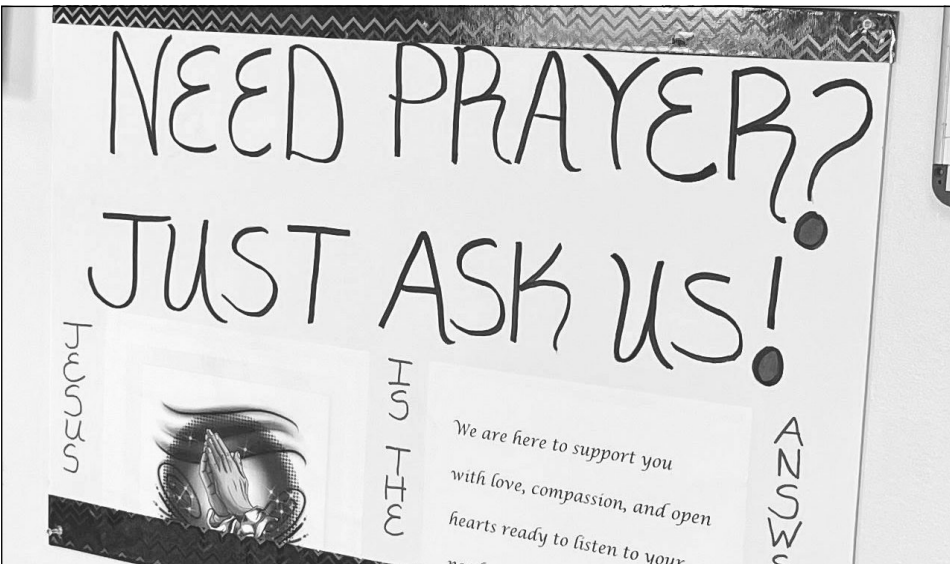 NEED PRAYER?
JUST ASK US!
JESUS
IS THE
We are here to support you
with love, compassion, and open
hearts ready to listen to your